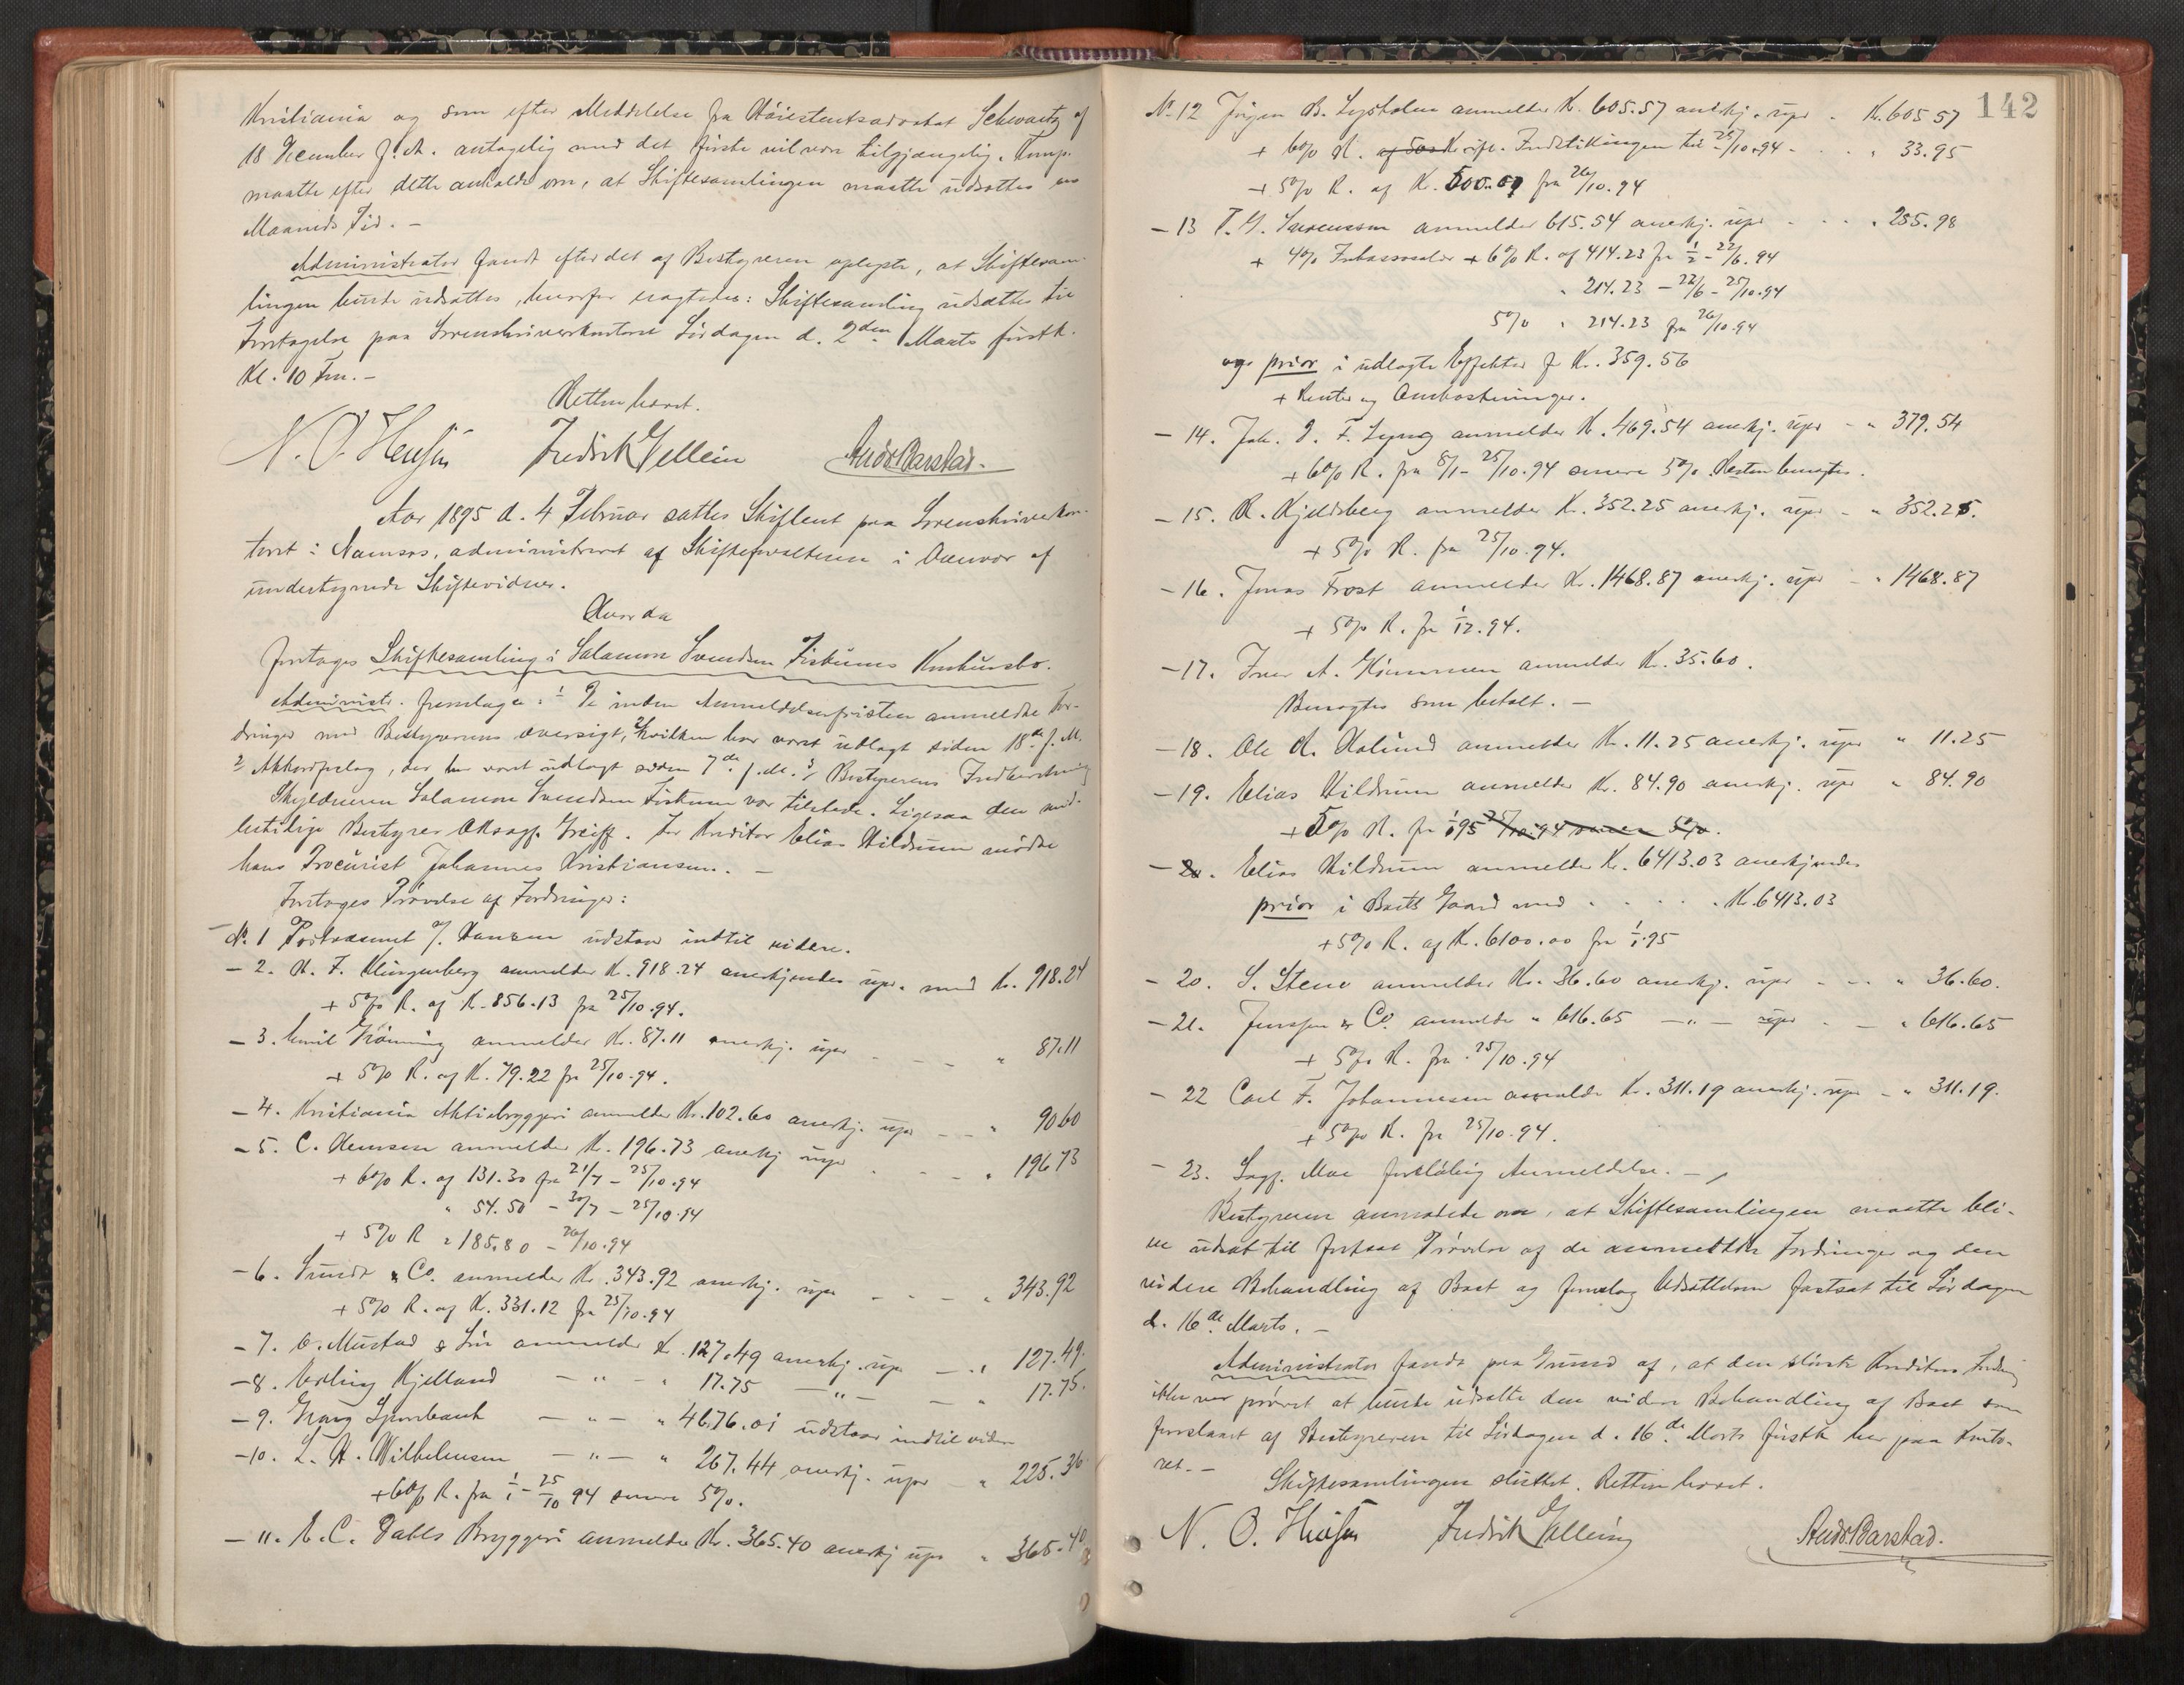 Kristiania og som efter Meddelelse fra Høiesteretsadvokat Schwartz af
18 December f. A. antagelig med det første vil være tilgjængelig. Komp.
maatte efter dette anholde om, at Skiftesamlingen maatte udsættes en
Maaneds Tid. -
Administrator fandt efter det af Bestyreren oplyste, at Skiftesam-
lingen burde udsættes, hvorfor eragtedes: Skiftesamling udsættes til
Foretagelse paa Sorenskriverkontoret Lørdagen d. 2den Marts førstk.
Kl. 10 Fm. -
Retten hævet.
N. O. Fredrik Gellein Andr. Barstad.
Aar 1895 d. 4 Februar sattes Skifteret paa Sorenskriverkon-
toret i Namsos, administreret af Skifteforvalteren i Overvær af
undertegnede Skiftevidner.
Hvorda
foretoges Skiftesamling i Salamon Svendsen Fiskums Konkursbo.
Administr. fremlagde: 1 De inden Anmeldelsesfristen anmeldte For-
dringer med Bestyrerens Oversigt, hvilken har været udlagt siden 18de f. M.
2 Akkordforslag, der har været udlagt siden 7de f. M. 3, Bestyrerens Indberetning
Skyldneren Salamon Svendsen Fiskum var tilstede. Ligesaa den mid-
lertidige Bestyrer Oksagf. Greiff. For Kreditor Elias Hildrum mødte
hans Procurist Johannes Kristiansen. -
Foretoges Prøvelse af Fordringer:
No. 1 Postvæsenet v/ Hansen udstaar indtil videre.
- 2. H. F. Klingenberg anmelder K. 918.24 anerkjendes upr. med Kr. 918.24
+ 5% R. af K. 856.13 fra 25/10.94.
- 3. Emil Grønning anmelder Kr. 87.11 anerkj. upr - - " 87.11
+ 5% R. af K. 79.22 fra 25/10.94.
- 4. Kristiania Aktiebryggeri anmelder Kr. 102.60 anerkj. upr - - " 90 60
- 5. C. Hemsen anmelder K. 196.73 anerkj upr - - " 196 73
+ 6% R. af 131.30 fra 21/7 - 25/10.94
" 54.50 - 30/7 - 25/10.94
+ 5% R " 185.80 - 26/10.94
- 6. Sundt & Co. anmelder Kr. 343.92 anerkj. upr - - " 343.92
+ 5% R. af K. 331.12 fra 25/10.94
- 7. O. Mustad & Søn anmelder K. 127.49 anerkj. upr - " 127.49.
- 8. Erling Kjelland - " - " 17.75 - " - - " 17.75.
- 9. Grong Sparebank - " - " 4676.01 udstaar indtil videre
- 10. L. H. Wilhelmsen - " - " 267.44 anerkj. upr " 225.36
+ 6% R. fra 1/1 - 25/10 94 senere 5%.
- 11. E. C. Dahls Bryggeri anmelder Kr. 365.40 anerkj upr " 365.40
142
No. 12 Jørgen B. Lysholm anmelder K. 605.57 anerkj. upr - K. 605 57
+ 6% R. ifl. Indstillingen til 25/10.94 - - - " 33.95
+ 5% R. af K. 500.00 fra 26/10.94
- 13 T. G. anmelder 615.54 anerkj. upr - - - " 255.98
+ 4% Inkassosalær + 6% R. af 414.23 fra 1/2 - 22/6.94
" 214.23 - 22/6 - 25/10.94
5% " 214.23 fra 26/10.94
og prior i udlagte Effekter f K. 359.56
+ Renter og Omkostninger.
- 14. Joh. F. Lyng anmelder K. 469.54 anerkj. upr - " 379.54
+ 6% R. fra 8/1 - 25/10.94 senere 5%. Resten benægtes.
- 15. R. Kjeldsberg anmelder K. 352.25 anerkj. upr - " 352.25.
+ 5% R. fra 25/10.94.
- 16. Jonas Frost anmelder Kr. 1468.87 anerkj. upr - " 1468.87
+ 5% R. fra 1/12.94.
- 17. Iver A. anmelder Kr. 35.60.
Benægtes som betalt. -
- 18. Ole K. anmelder Kr. 11.25 anerkj. upr " 11.25
- 19. Elias Hildrum anmelder Kr. 84.90 anerkj. upr " 84.90
+ 5% R. fra 1/1 95 25/10.94 senere 5%.
- 20. Elias Hildrum anmelder Kr. 6413.03 anerkjendes
prior i Boets Gaard med - - - - Kr. 6413.03
+ 5% R. af K. 6100.00 fra 1/1.95
- 20. S. Stene anmelder Kr. 36.60 anerkj. upr - - " 36.60.
- 21. Jenssen & Co. anmelder " 616.65 - " - upr - - " 616.65
+ 5% R. fra 25/10.94
- 22 Carl F. Johannesen anmelder Kr. 311.19 anerkj. upr - " 311.19.
+ 5% R. fra 25/10.94.
- 23. Sagf. Moe foreløbig Anmeldelse. -
Bestyreren anmodede om, at Skiftesamlingen maatte bli-
ve udsat til fortsat Prøvelse af de anmeldte Fordringer og den
videre Behandling af Boet og foreslog Udsættelsen fastsat til Lørdagen
d. 16de Marts. -
Administrator fandt paa Grund af, at den største Kreditors Fordring
ikke var prøvet at burde udsætte den videre Behandling af Boet som
foreslaaet af Bestyreren til Lørdagen d. 16de Marts førstk her paa Konto-
ret. -
Skiftesamlingen sluttet. Retten hævet.
N. O. Fredrik Gellein Andr. Barstad.